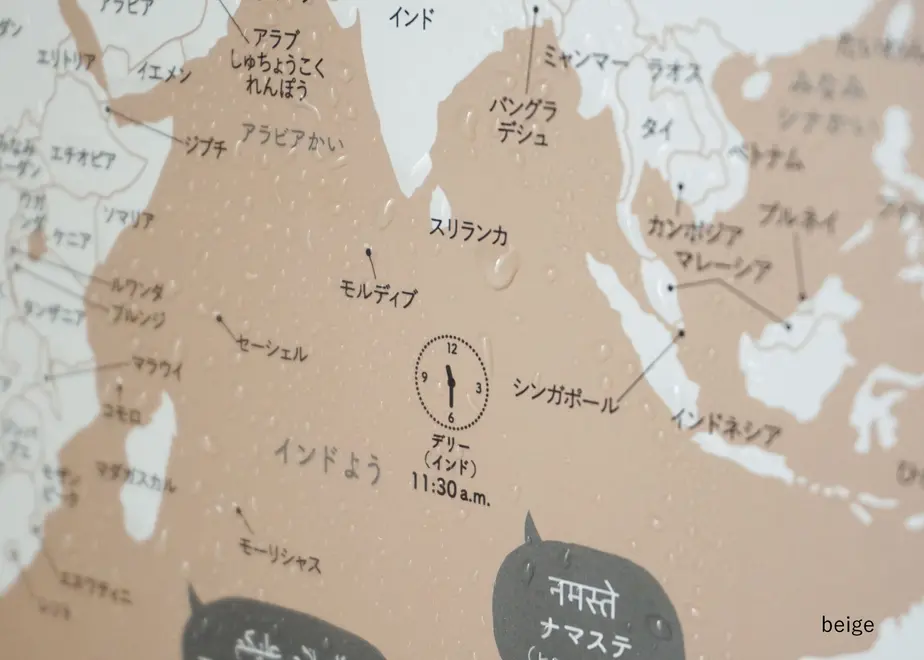 アラビア
インド
エリトリア
イエメン
アラブ
しゅちょうこく
れんぽう
ミャンマー
ラオス
みなみ
シナかい
バングラ
デシュ
タイ
ジブチ
アラビアかい
エチオピア
ベトナム
ウガ
ンダ
ソマリア
ケニア
スリランカ
カンボジア
ブルネイ
マレーシア
モルディブ
ルワンダ
ブルンジ
タンザニア
セーシェル
マラウイ
コモロ
12
9
3
6
デリー
(インド)
11:30 a.m.
シンガポール
インドネシア
インドよう
モザン
ビーク
マダガスカル
モーリシャス
エスワティニ
レソト
नमस्ते
ナマステ
عليكم
beige